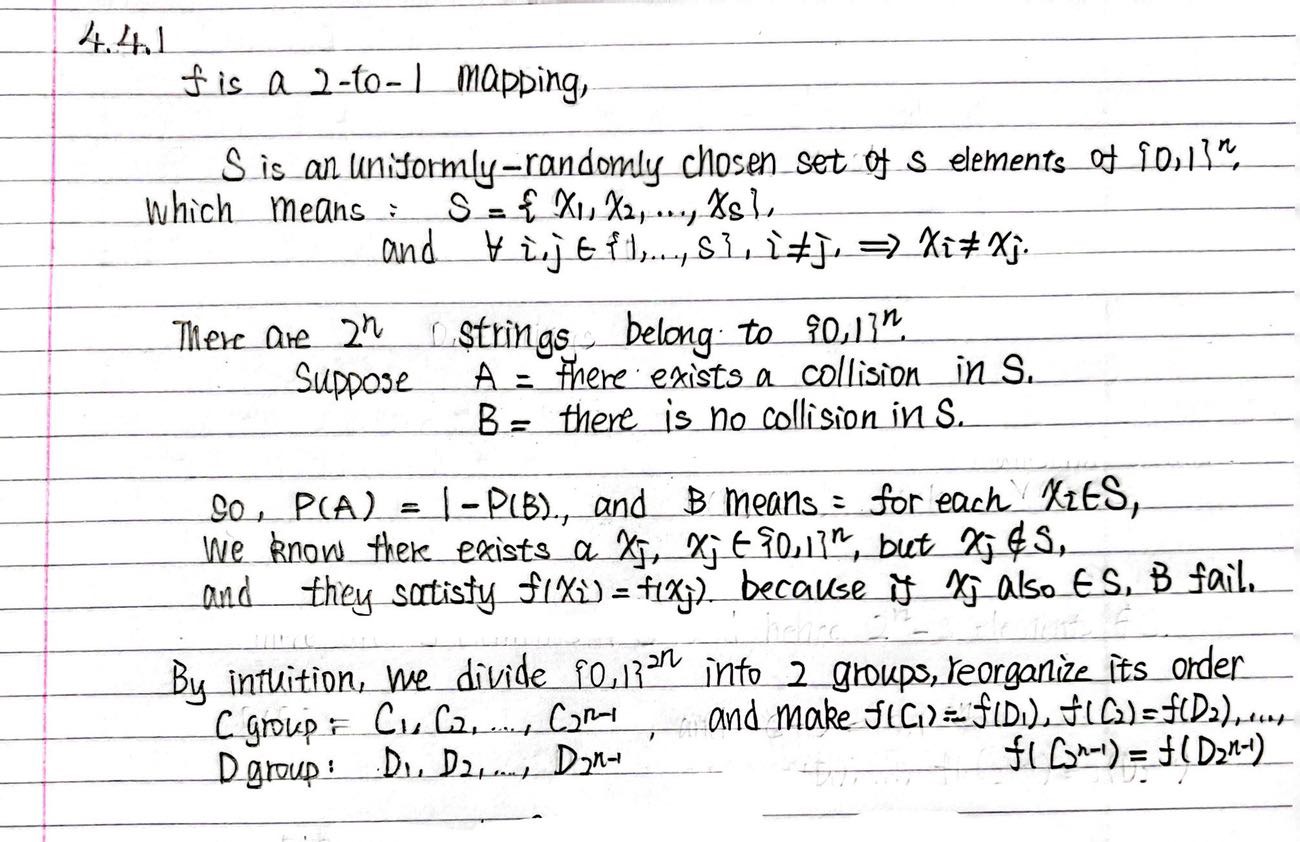 4.4.1
f is a 2-to-1 mapping,
S is an uniformly-randomly chosen set of s elements of {0,1}ⁿ,
which means : S = { x₁, x₂, ..., xₛ },
and ∀ i,j ∈ {1,..., s}, i≠j, ⇒ xᵢ ≠ xⱼ.
There are 2ⁿ strings belong to {0,1}ⁿ.
Suppose A = there exists a collision in S.
B = there is no collision in S.
So, P(A) = 1 - P(B), and B means : for each xᵢ∈S,
we know there exists a xⱼ, xⱼ ∈ {0,1}ⁿ, but xⱼ ∉ S,
and they satisfy f(xᵢ) = f(xⱼ). because if xⱼ also ∈ S, B fail.
By intuition, we divide {0,1}²ⁿ into 2 groups, reorganize its order
C group : C₁, C₂, ..., C₂ⁿ⁻¹, and make f(C₁) = f(D₁), f(C₂) = f(D₂), ...,
D group : D₁, D₂, ..., D₂ⁿ⁻¹ f(C₂ⁿ⁻¹) = f(D₂ⁿ⁻¹)